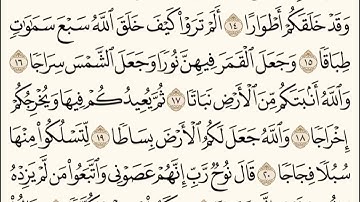 وَقَدْ خَلَقَكُمْ أَطْوَارًا ١٤ أَلَمْ تَرَوْا۟ كَيْفَ خَلَقَ ٱللَّهُ سَبْعَ سَمَـٰوَٰتٍ
طِبَاقًا ١٥ وَجَعَلَ ٱلْقَمَرَ فِيهِنَّ نُورًا وَجَعَلَ ٱلشَّمْسَ سِرَاجًا ١٦
وَٱللَّهُ أَنۢبَتَكُم مِّنَ ٱلْأَرْضِ نَبَاتًا ١٧ ثُمَّ يُعِيدُكُمْ فِيهَا وَيُخْرِجُكُمْ
إِخْرَاجًا ١٨ وَٱللَّهُ جَعَلَ لَكُمُ ٱلْأَرْضَ بِسَاطًا ١٩ لِّتَسْلُكُوا۟ مِنْهَا
سُبُلًا فِجَاجًا ٢٠ قَالَ نُوحٌ رَّبِّ إِنَّهُمْ عَصَوْنِى وَٱتَّبَعُوا۟ مَن لَّمْ يَزِدْهُ